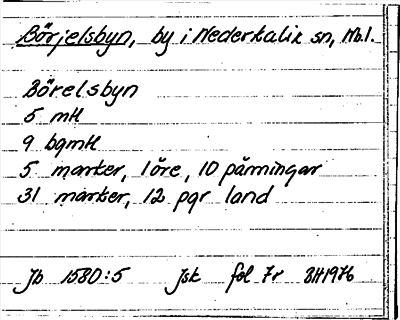 Börjelsbyn, by i Nederkalix sn, Nb.l.
Börelsbyn
5 mtl
9 bgmtl
5 marker, 1 öre, 10 pänningar
31 marker, 12 pgr land
Jb 1580:5 Jsk fol 7r BH1976